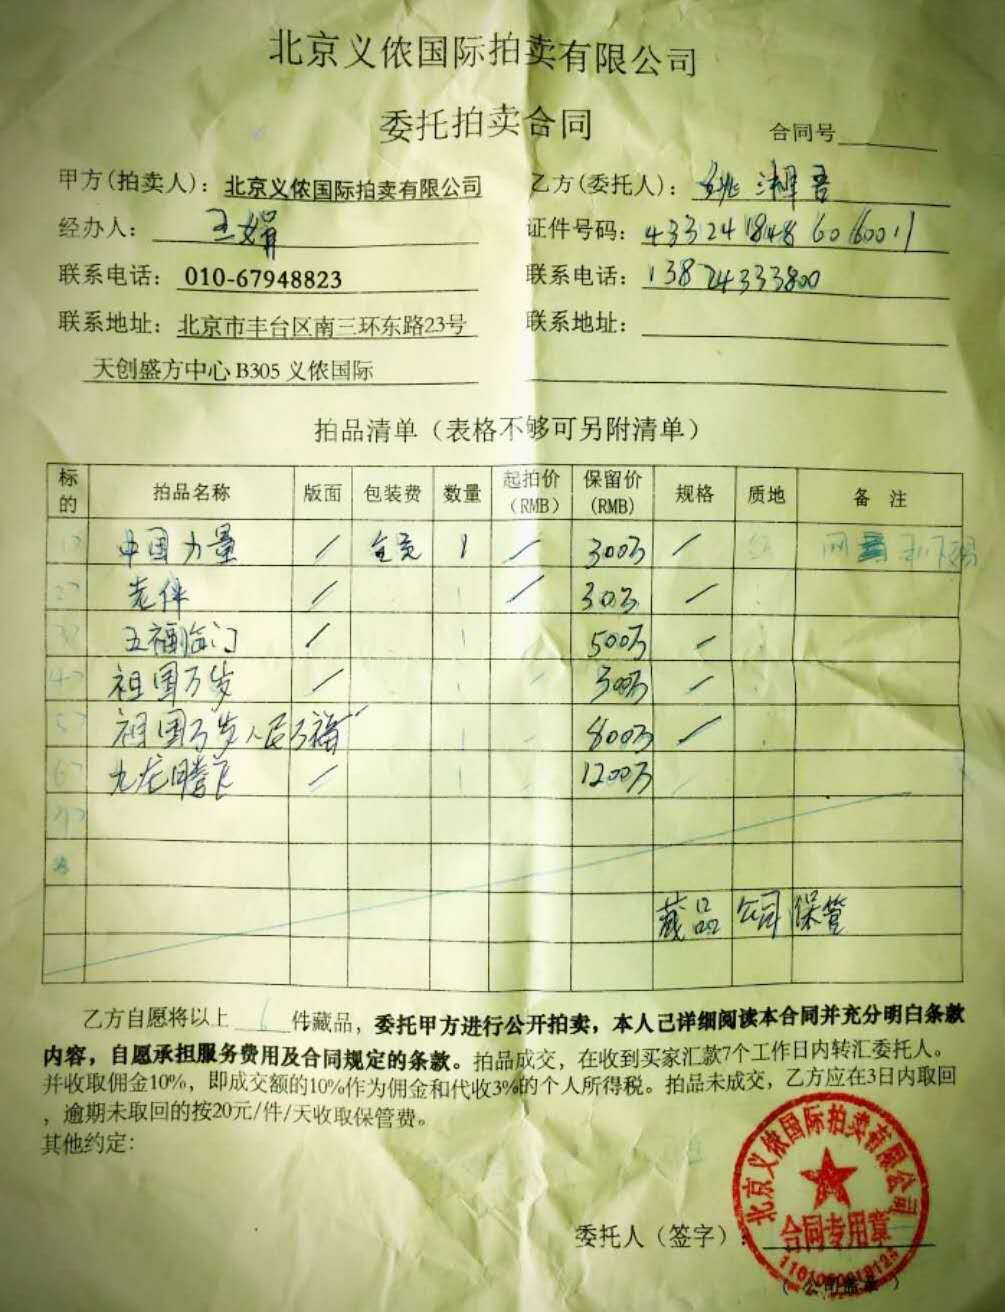 北京义侬国际拍卖有限公司
委托拍卖合同
合同号
甲方(拍卖人)：北京义侬国际拍卖有限公司 乙方(委托人)：
经办人：王娟 证件号码：
联系电话：010-67948823 联系电话：13874333800
联系地址：北京市丰台区南三环东路23号 联系地址：
天创盛方中心 B305 义侬国际
拍品清单（表格不够可另附清单）
标的 拍品名称 版面 包装费 数量 起拍价(RMB) 保留价(RMB) 规格 质地 备 注
1 中国力量 / 1 / 300万 /
2 老伴 / 1 / 30万 /
3 五福临门 / 1 500万 /
4 祖国万岁 / 1 / 300万 /
5 祖国万岁人民万福 1 800万 /
6 九龙腾飞 / 1 1200万
7
8
藏品公司保管
乙方自愿将以上 6 件藏品，委托甲方进行公开拍卖，本人已详细阅读本合同并充分明白条款
内容，自愿承担服务费用及合同规定的条款。拍品成交，在收到买家汇款7个工作日内转汇委托人。
并收取佣金10%，即成交额的10%作为佣金和代收3%的个人所得税。拍品未成交，乙方应在3日内取回
，逾期未取回的按20元/件/天收取保管费。
其他约定：
委托人（签字）：
北京义侬国际拍卖有限公司
合同专用章